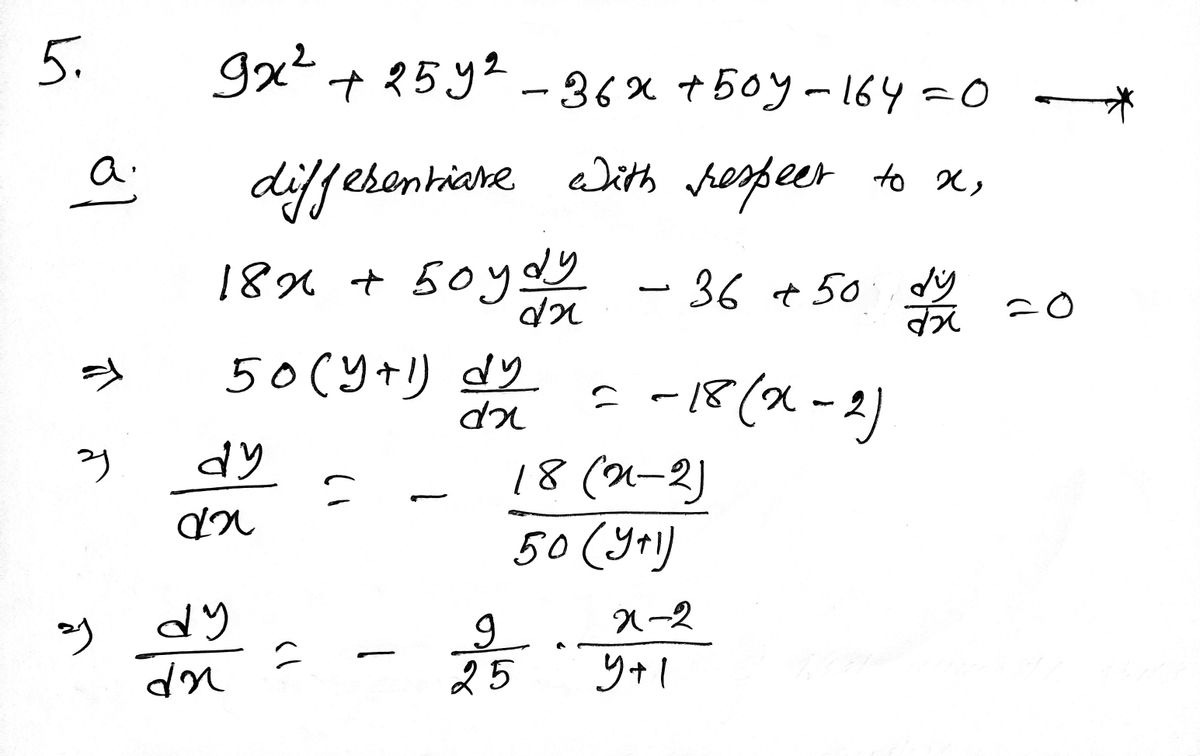 5. 9x² + 25y² - 36x + 50y - 164 = 0 —*
a. differentiate with respect to x,
18x + 50y dy/dx - 36 + 50 dy/dx = 0
⇒ 50(y+1) dy/dx = -18(x-2)
⇒ dy/dx = - 18(x-2)/50(y+1)
⇒ dy/dx = - 9/25 · x-2/y+1